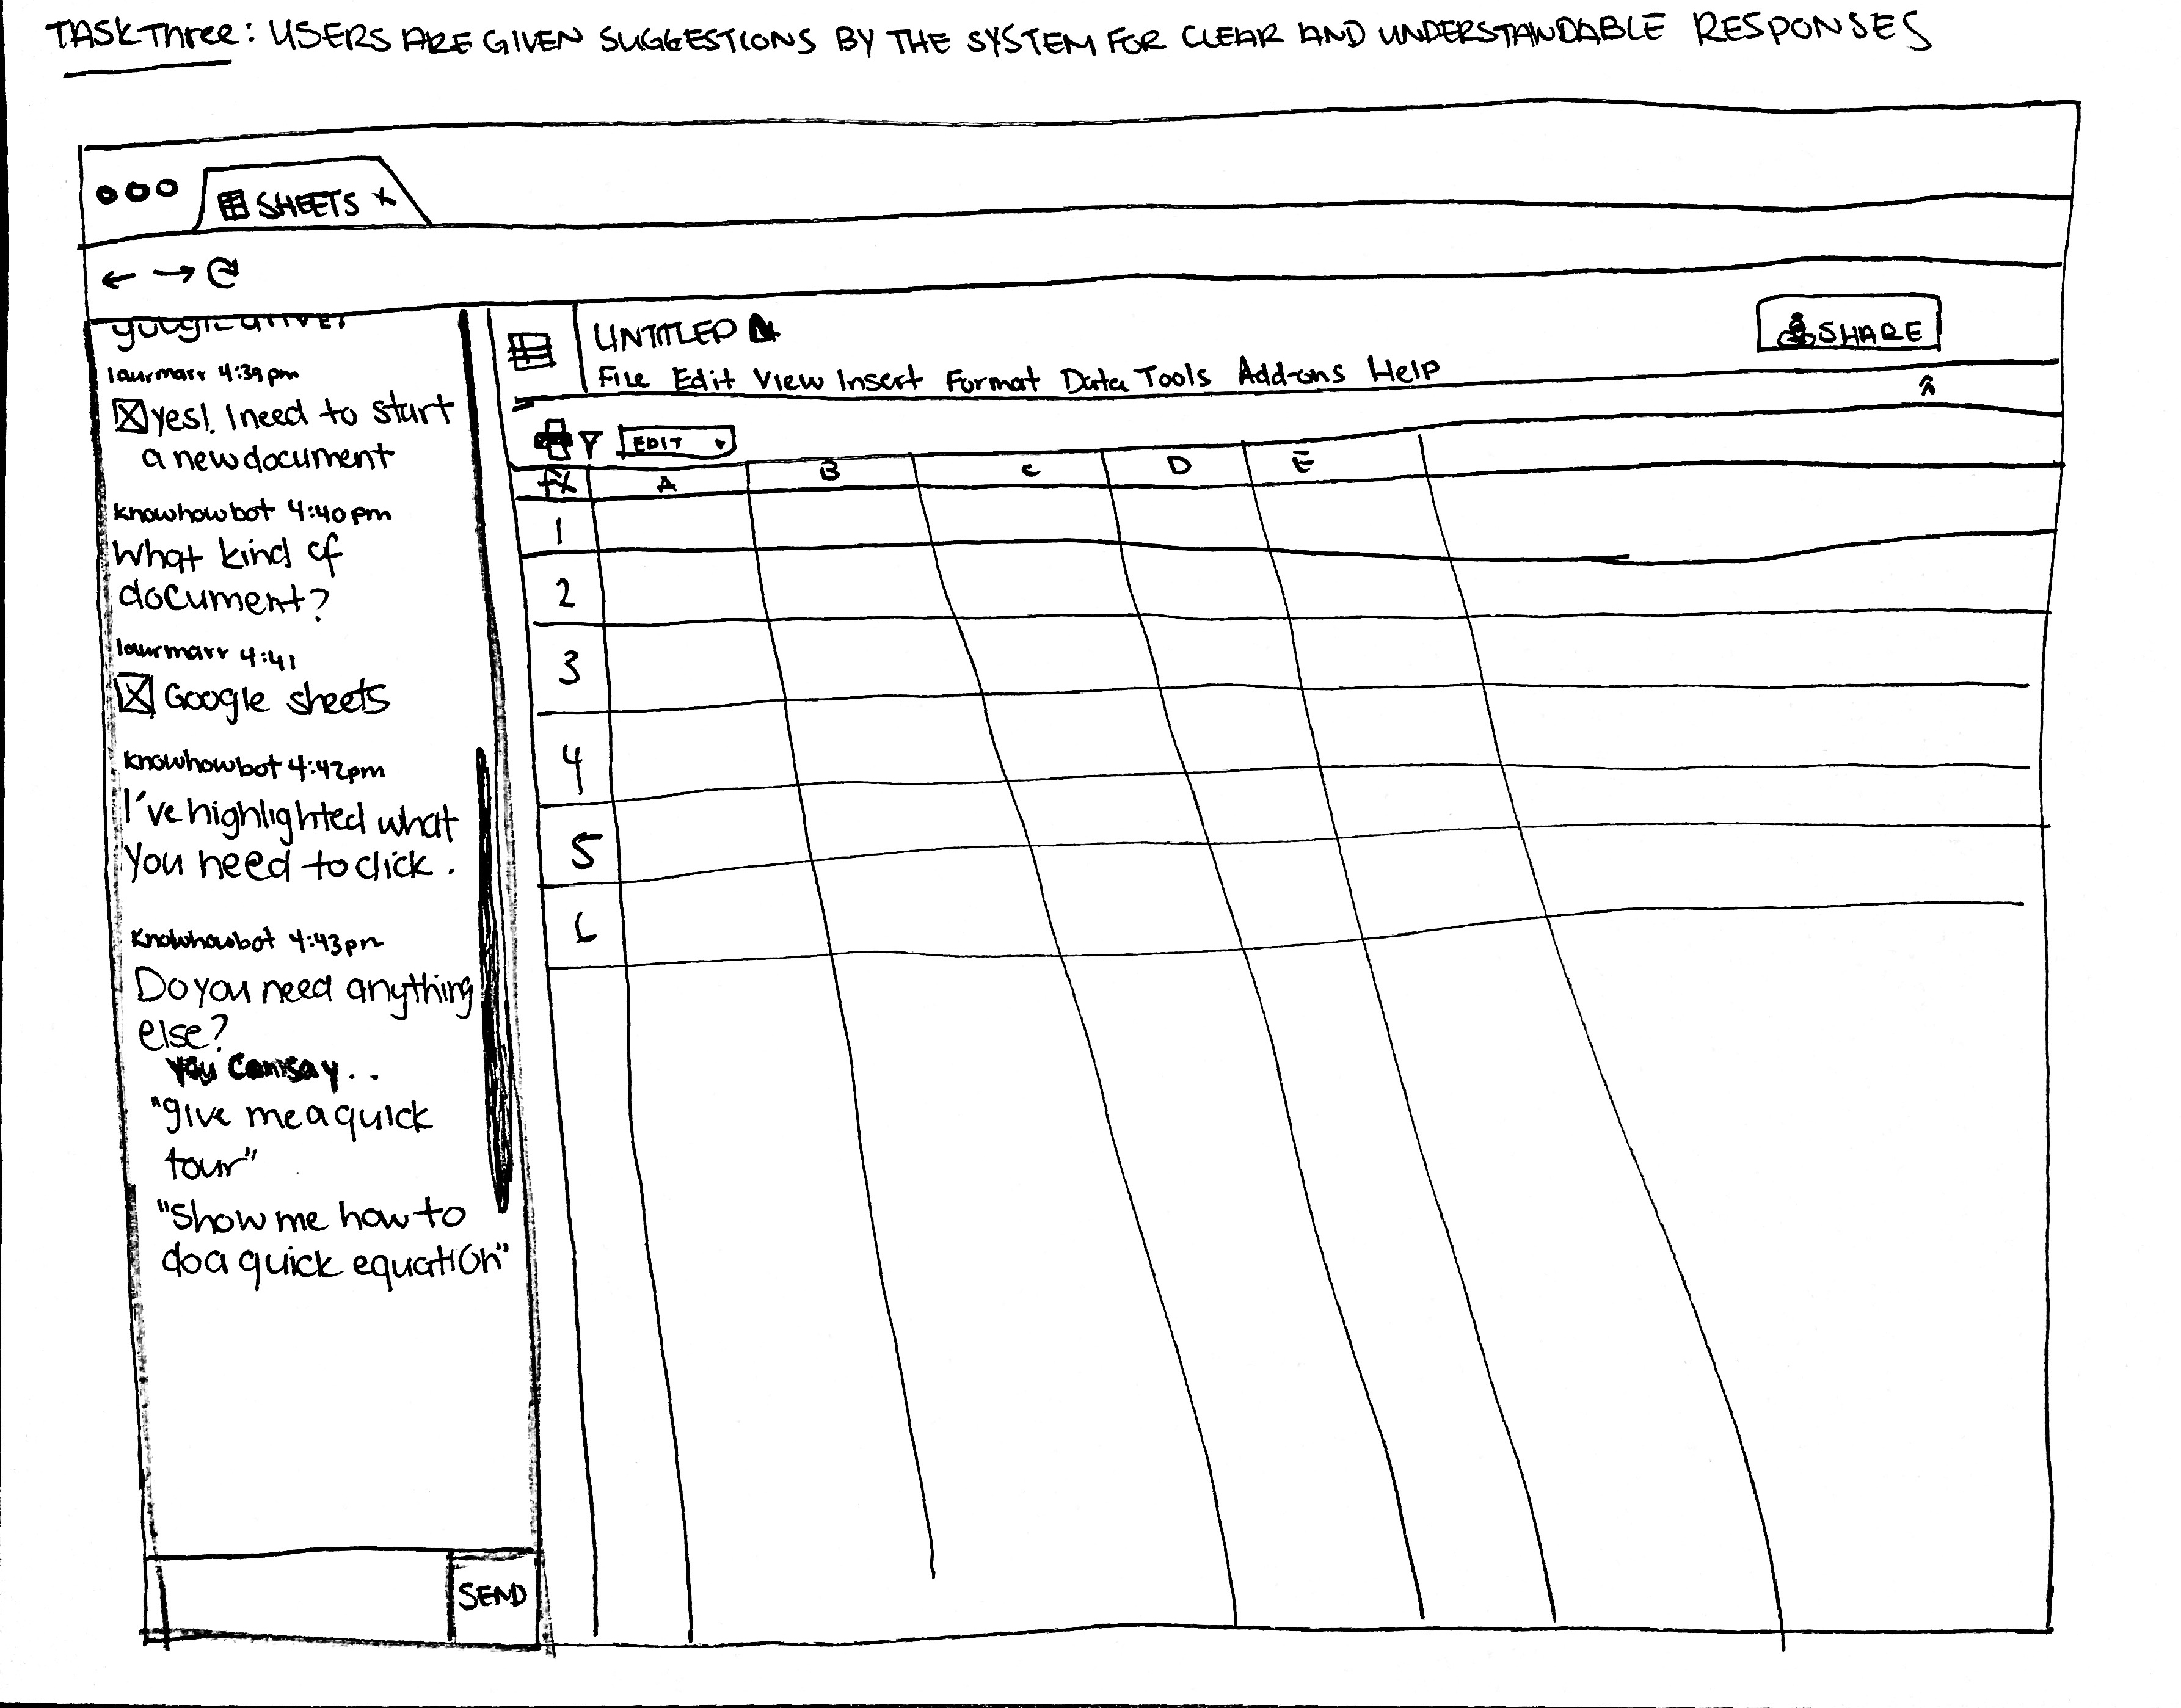 TASK Three: USERS ARE GIVEN SUGGESTIONS BY THE SYSTEM FOR CLEAR AND UNDERSTANDABLE RESPONSES
SHEETS X
laurmarr 4:39pm
yes! I need to start
a new document
knowhowbot 4:40pm
What kind of
document?
laurmarr 4:41
Google sheets
knowhowbot 4:42pm
I've highlighted what
You need to click.
knowhowbot 4:43pm
Do you need anything
else?
you can say..
"give me a quick
tour"
"Show me how to
do a quick equation"
SEND
UNTITLED
SHARE
File Edit View Insert Format Data Tools Add-ons Help
EDIT
fx A B C D E
1
2
3
4
5
6